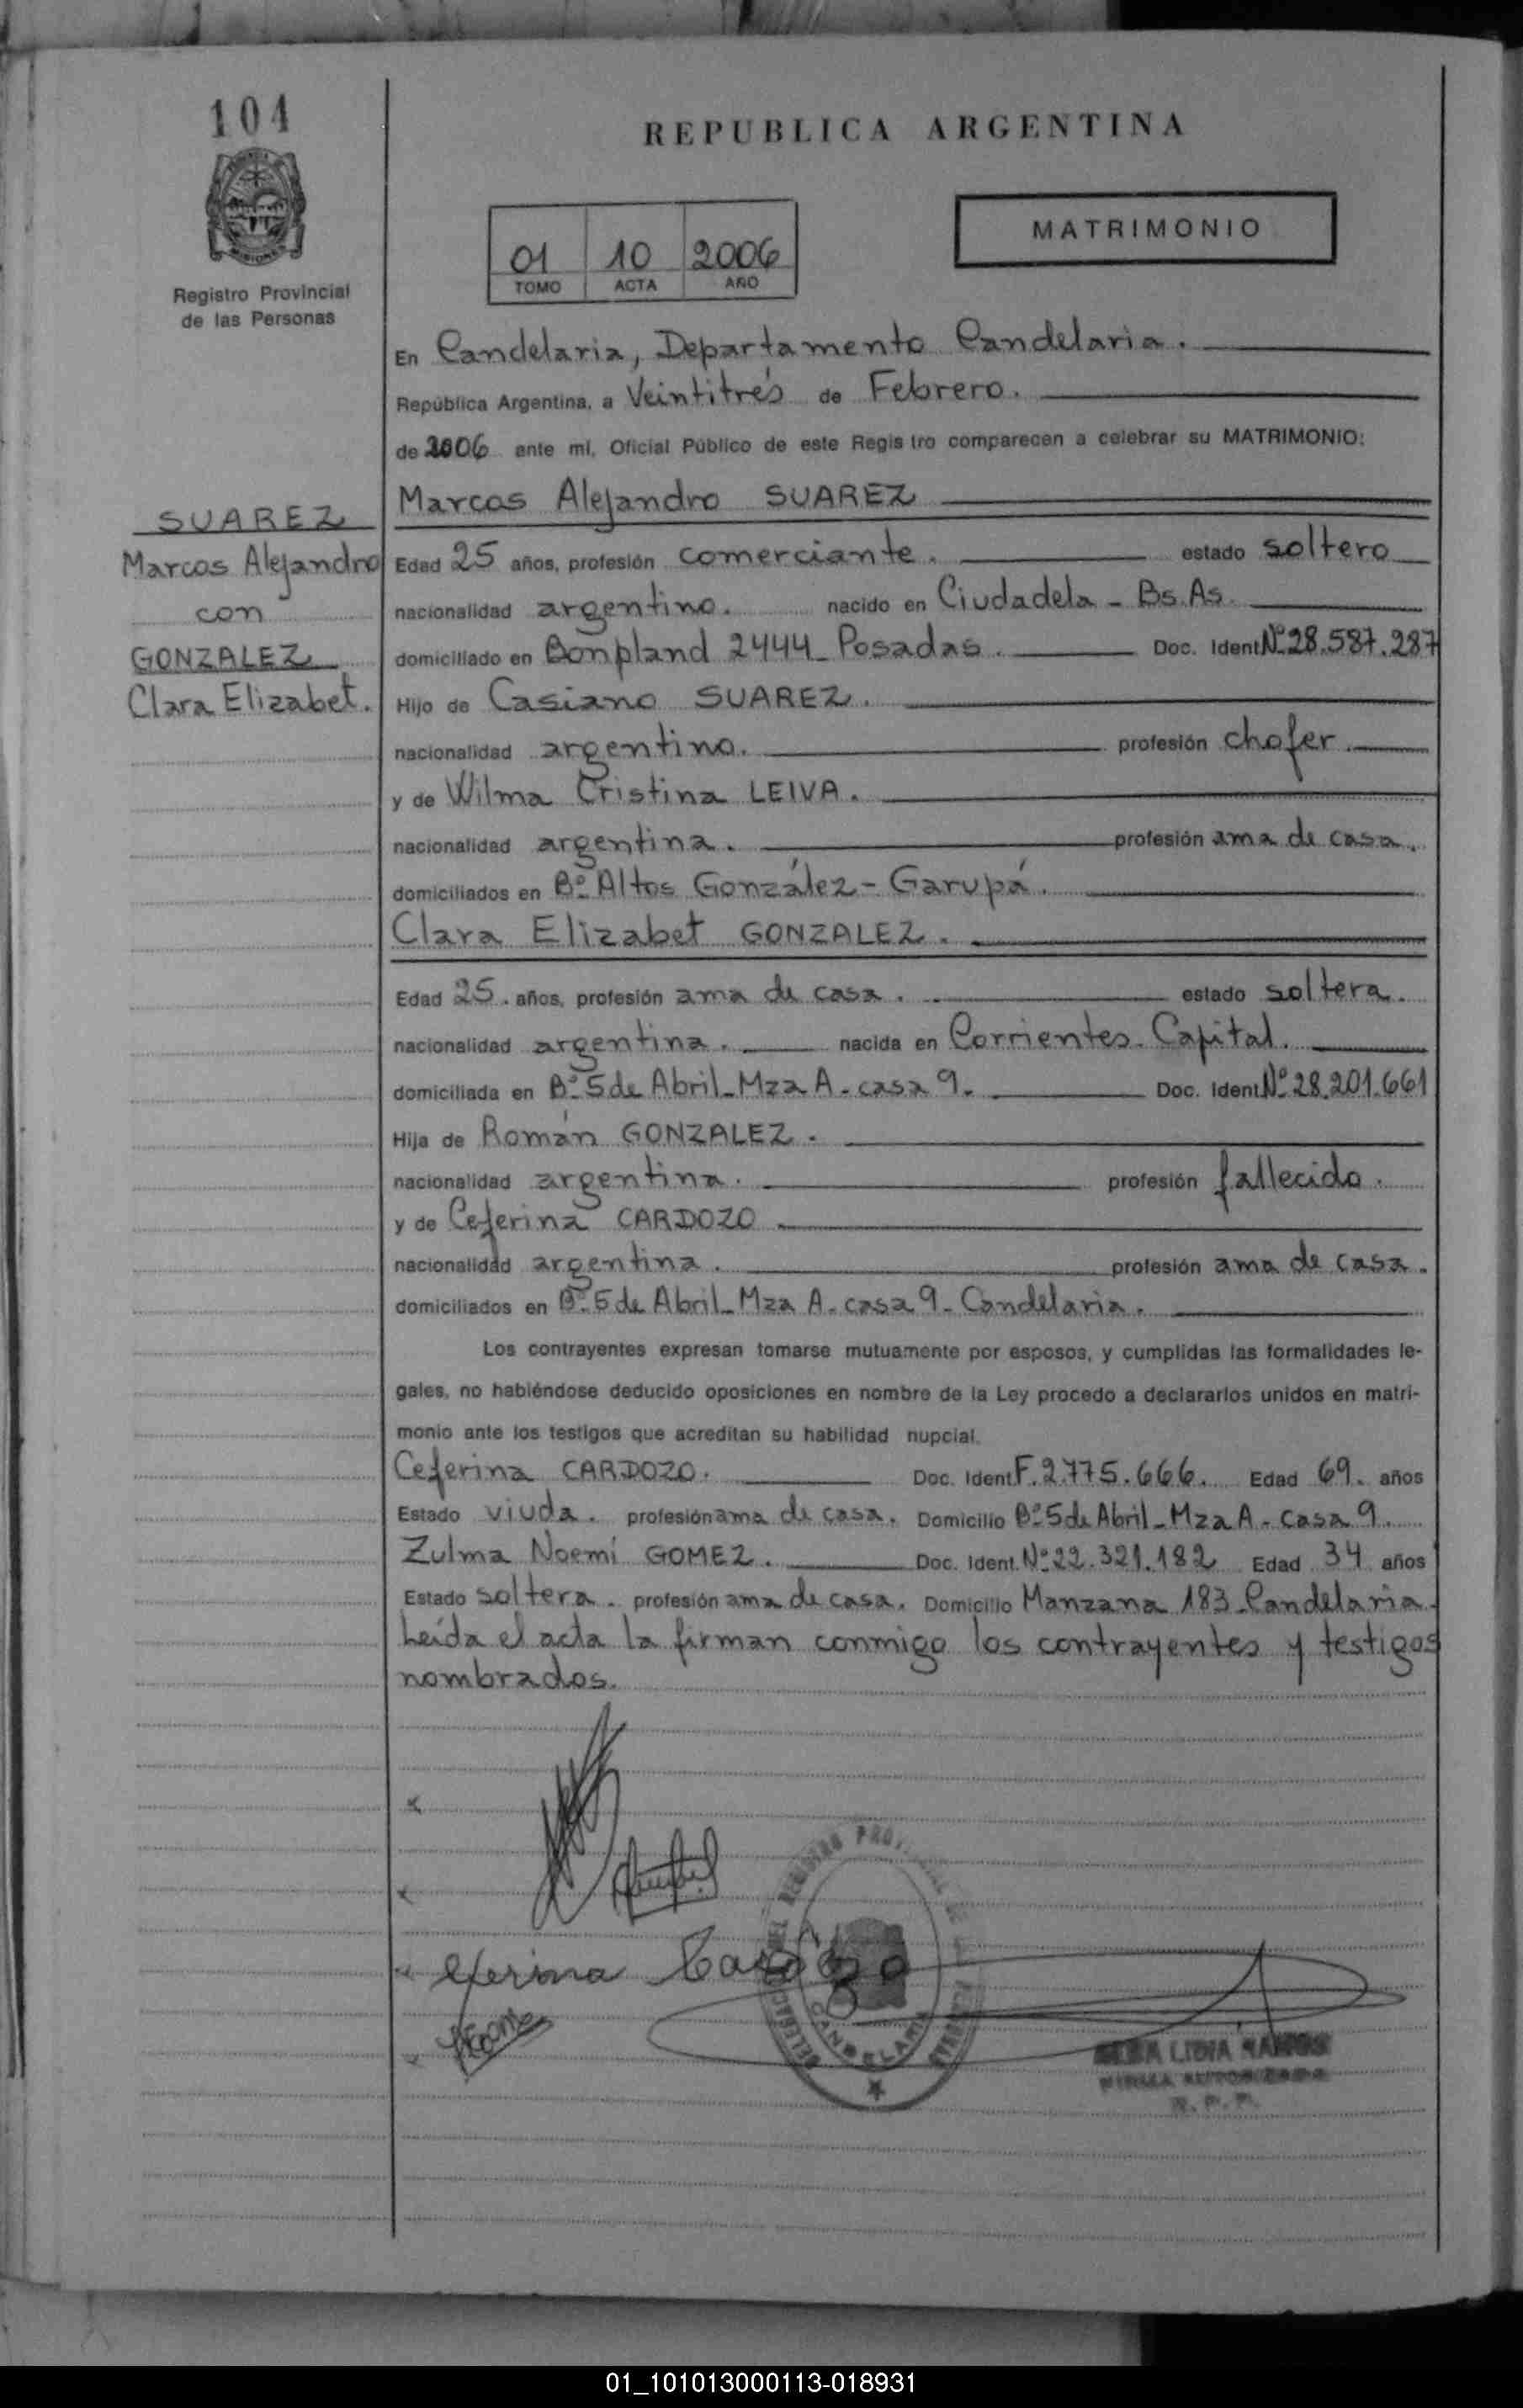 104
REPUBLICA ARGENTINA
MISIONES
01 10 2006
TOMO ACTA AÑO
MATRIMONIO
Registro Provincial
de las Personas
En Candelaria, Departamento Candelaria.
República Argentina, a Veintitrés de Febrero.
de 2006 ante mi, Oficial Público de este Regis tro comparecen a celebrar su MATRIMONIO:
Marcos Alejandro SUAREZ
SUAREZ
Marcos Alejandro
con
GONZALEZ
Clara Elizabet.
Edad 25 años, profesión comerciante. estado soltero
nacionalidad argentino. nacido en Ciudadela - Bs. As.
domiciliado en Bonpland 2444 - Posadas. Doc. Ident Nº 28.587.287
Hijo de Casiano SUAREZ.
nacionalidad argentino. profesión chofer.
y de Wilma Cristina LEIVA.
nacionalidad argentina. profesión ama de casa.
domiciliados en Bº Altos González - Garupá.
Clara Elizabet GONZALEZ.
Edad 25. años, profesión ama de casa. estado soltera.
nacionalidad argentina. nacida en Corrientes - Capital.
domiciliada en Bº 5 de Abril - Mza A - casa 9. Doc. Ident Nº 28.201.661
Hija de Román GONZALEZ.
nacionalidad argentina. profesión fallecido.
y de Ceferina CARDOZO
nacionalidad argentina. profesión ama de casa.
domiciliados en Bº 5 de Abril - Mza A - casa 9 - Candelaria.
Los contrayentes expresan tomarse mutuamente por esposos, y cumplidas las formalidades le-
gales, no habiéndose deducido oposiciones en nombre de la Ley procedo a declararlos unidos en matri-
monio ante los testigos que acreditan su habilidad nupcial.
Ceferina CARDOZO. Doc. Ident F. 2.775.666. Edad 69. años
Estado viuda. profesión ama de casa. Domicilio Bº 5 de Abril - Mza A - Casa 9.
Zulma Noemí GOMEZ. Doc. Ident. Nº 22.321.182 Edad 34 años
Estado soltera. profesión ama de casa. Domicilio Manzana 183 - Candelaria.
Leída el acta la firman conmigo los contrayentes y testigos
nombrados.
CANDELARIA
LIDIA RAMOS
FIRMA AUTORIZADA
R. P. P.
01_101013000113-018931